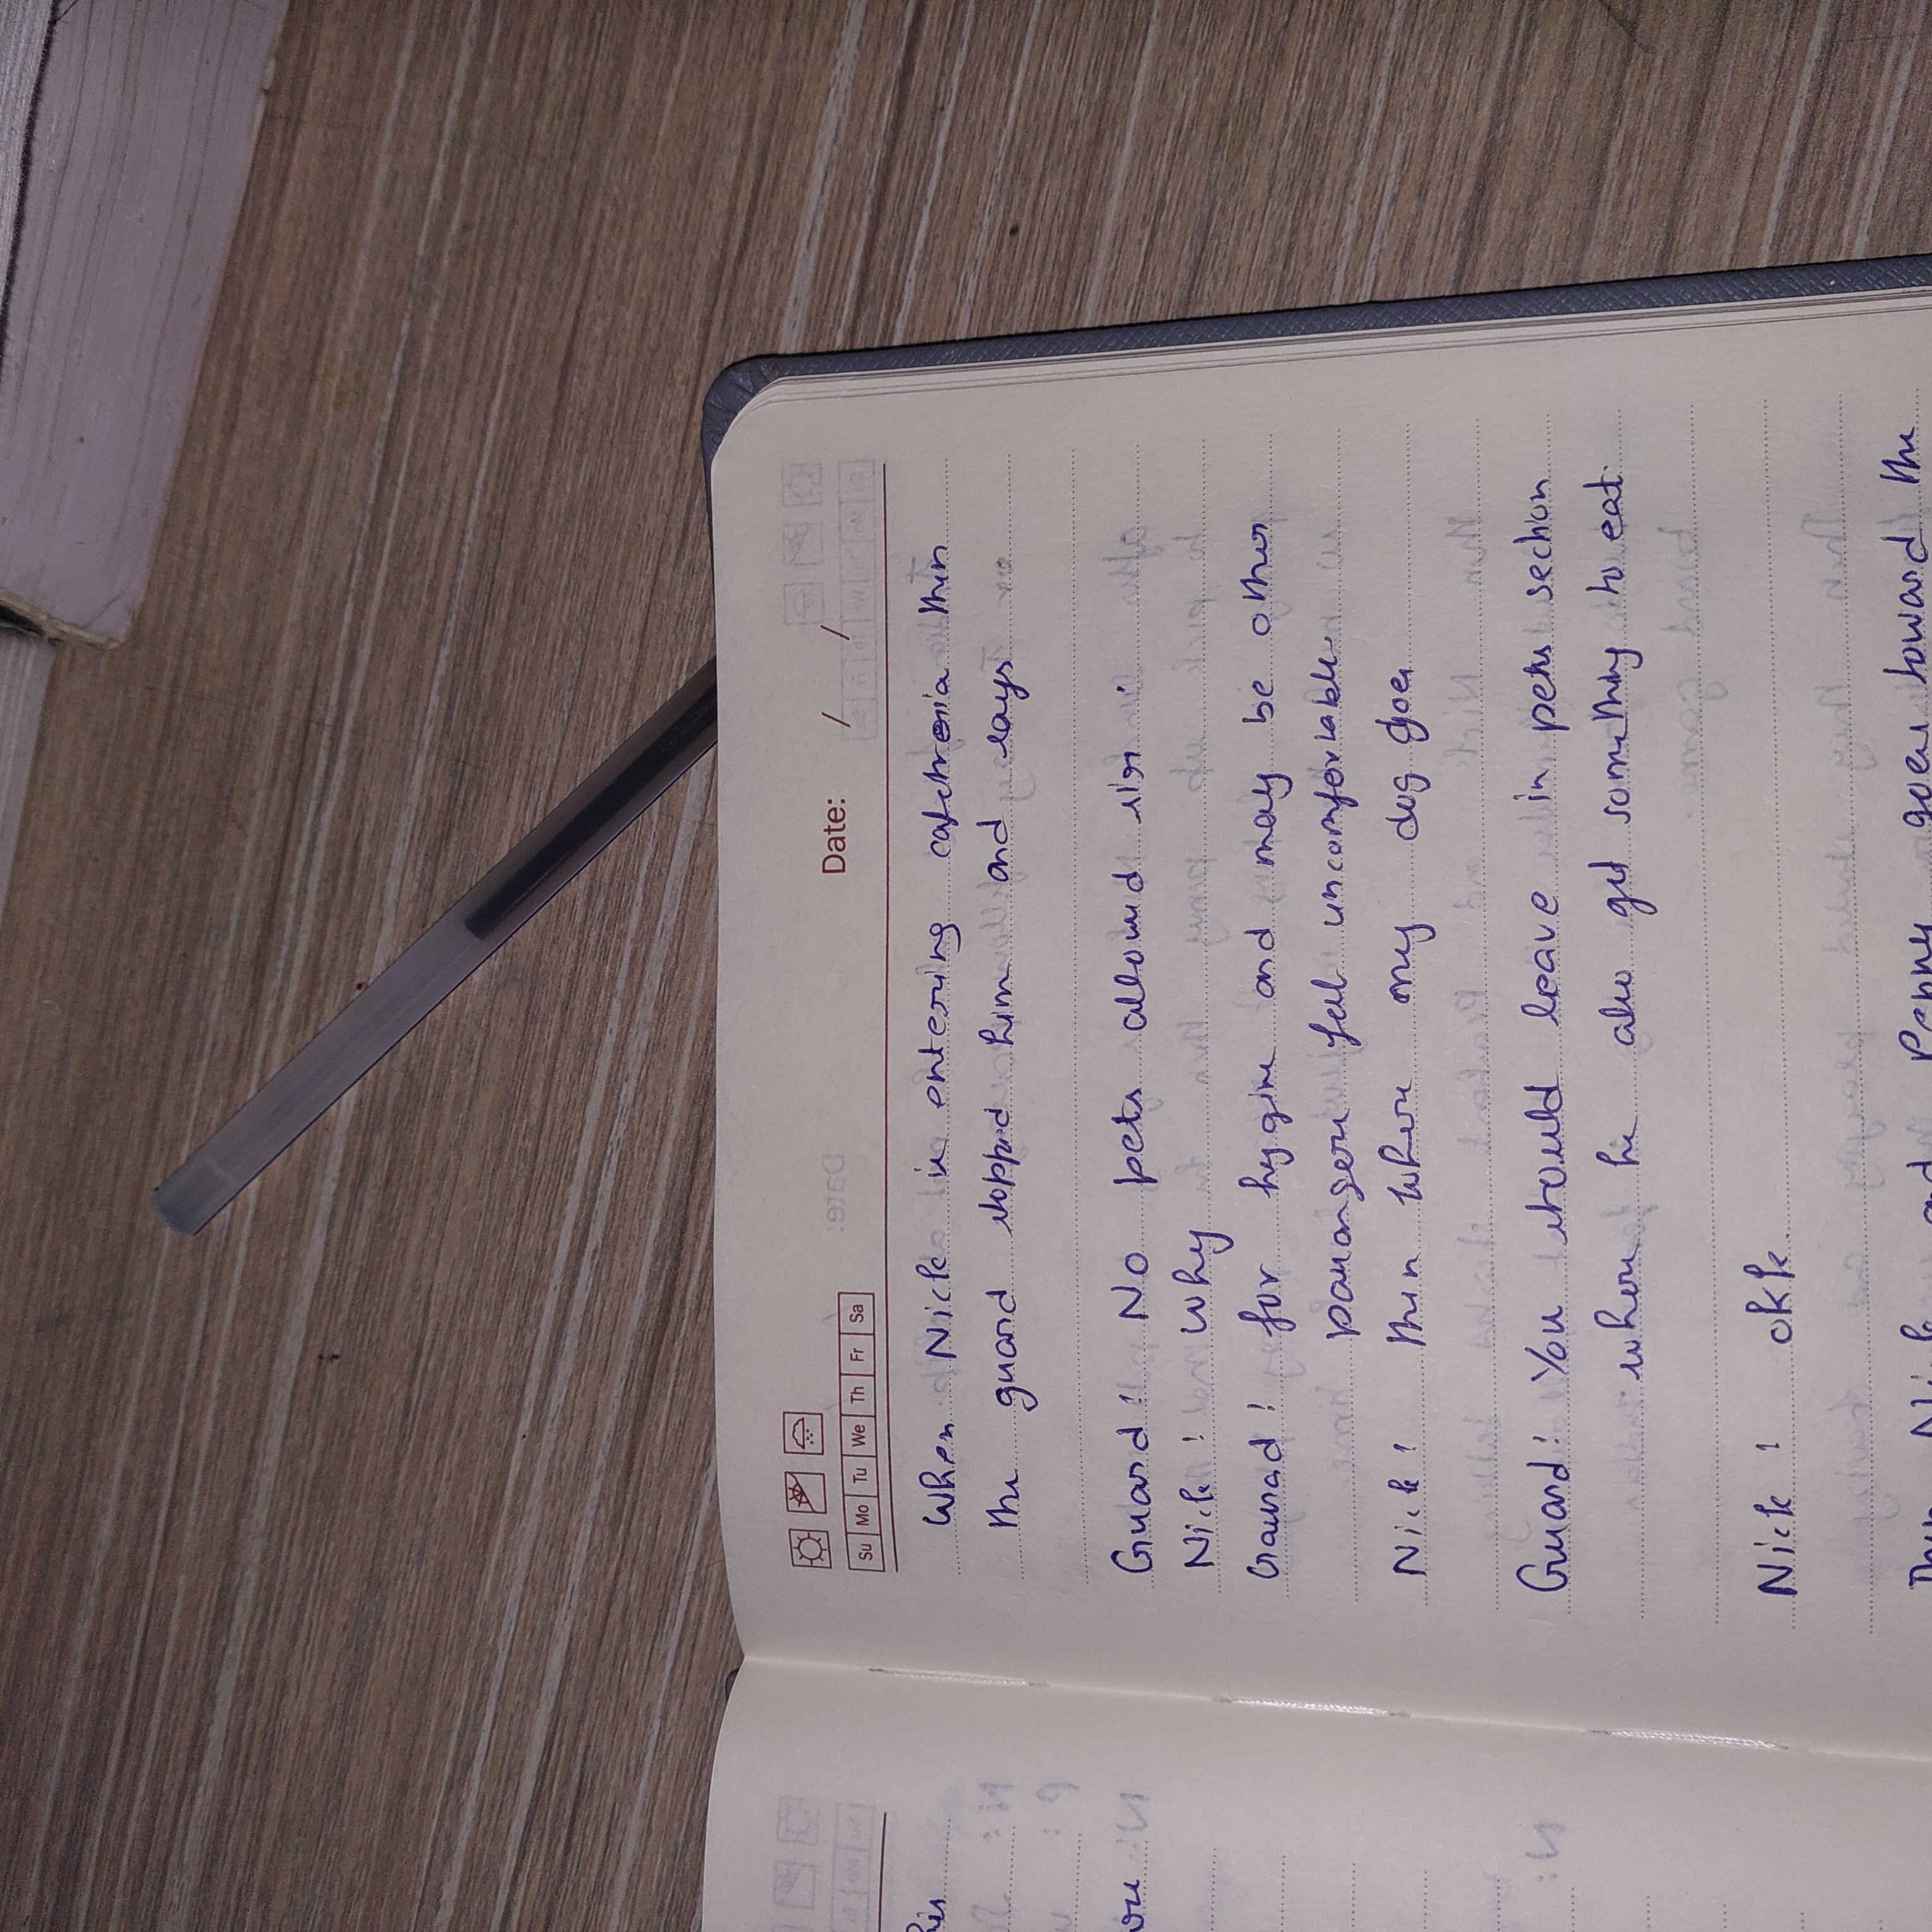 Su Mo Tu We Th Fr Sa
Date: / /
When Nick is entering cafetreria then
the guard stopped him and says
Guard: No pets allowed sir.
Nick: Why
Gaurad: for hygine and may be other
passangers feel uncomfortable.
Nick: then where my dog goes
Guard: You should leave in pets section
where he also get something to eat.
Nick: okk.
Then Nick and Penny goes toward the